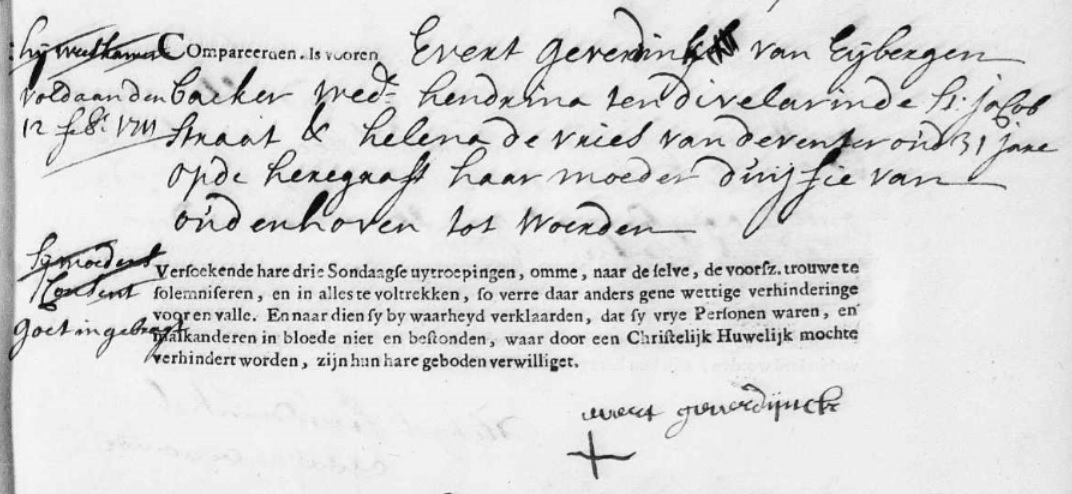 hij weeskamer
voldaan den
12 feb: 1711
Compareerden als vooren Evert geverdink van Eijbergen
backer wed:r hendrina ten in de St: Jacob
straat & helena de vries van deventer oud 31 jare
op de heregraft haar moeder van
oudenhoven tot Woerden
sij moeders
Consent
goet ingebragt
Versoekende hare drie Sondaagse uytroepingen, omme, naar de selve, de voorsz. trouwe te
solemniseren, en in alles te voltrekken, so verre daar anders gene wettige verhinderinge
voor en valle. En naar dien sy by waarheyd verklaarden, dat sy vrye Personen waren, en
malkanderen in bloede niet en bestonden, waar door een Christelijk Huwelijk mochte
verhindert worden, zijn hun hare geboden verwilliget.
evert geverdijnck